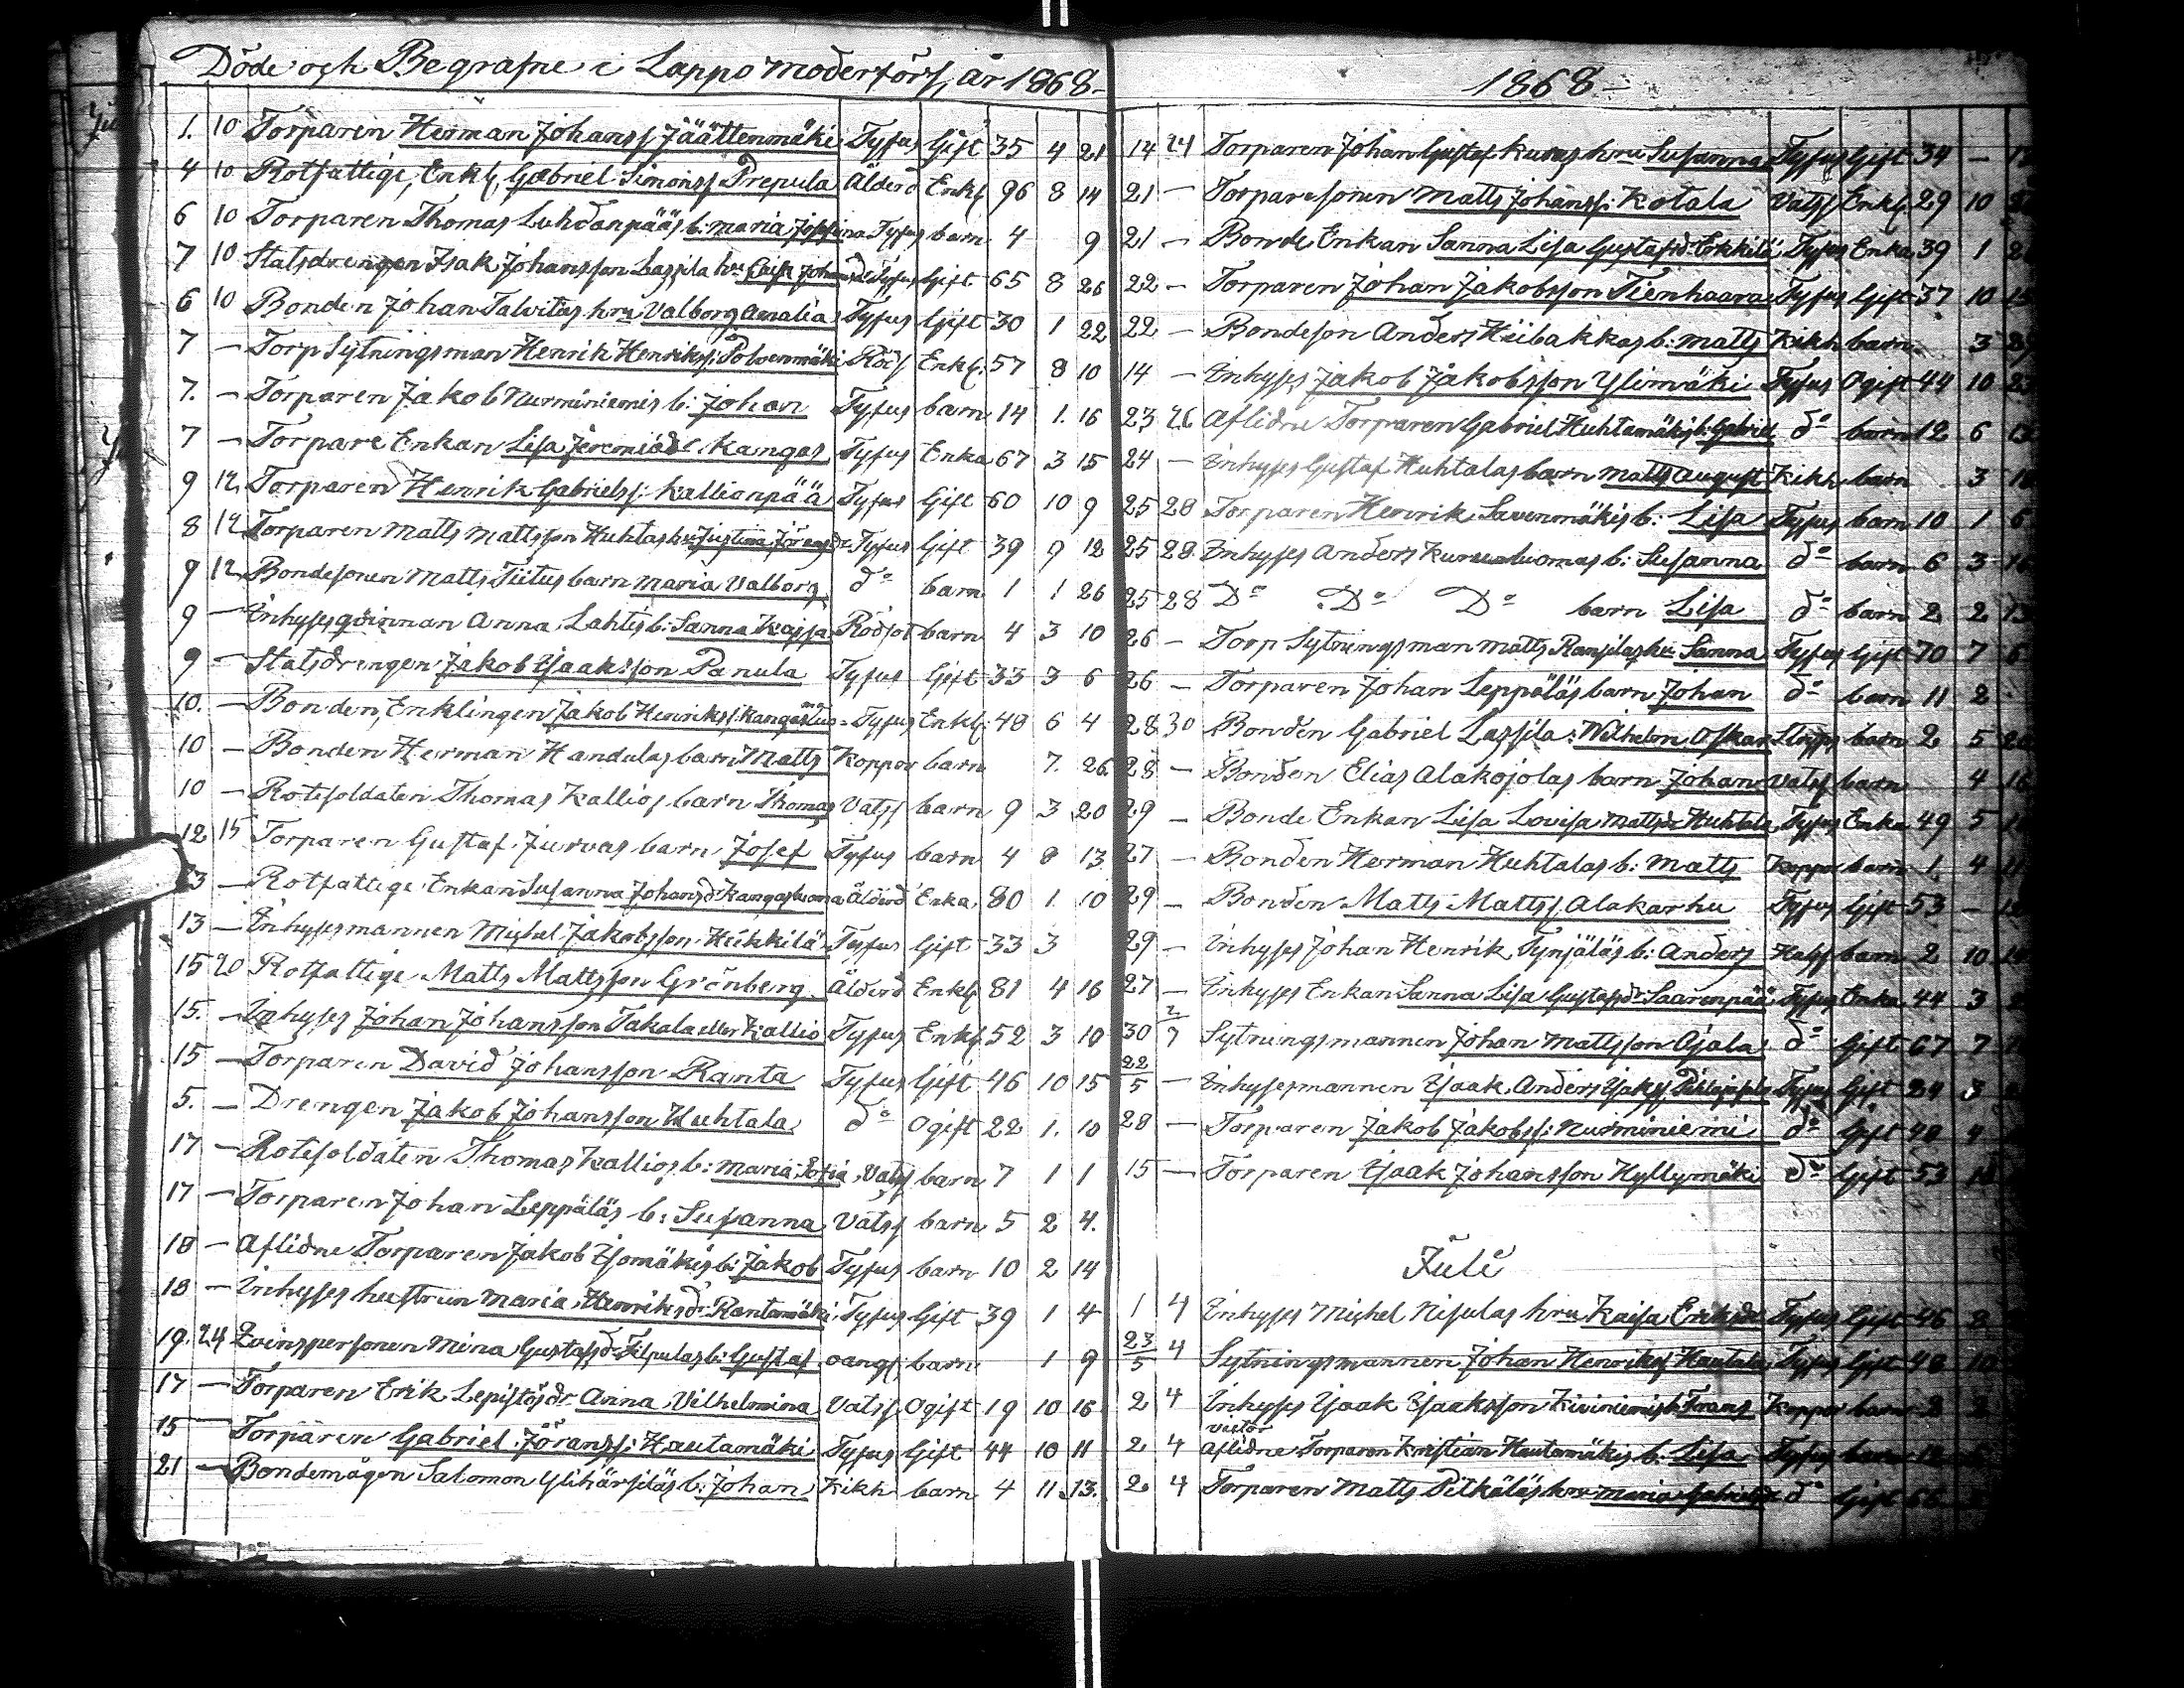 Döde och Begrafne i Lappo moderförs. år 1868.
1. 10 Torparen Herman Johanss. Jäättenmäki Tyfus Gift 35 4 21
4 10 Rotfattige, Enkl. Gabriel Simonss Prepula Ålderd Enkl 96 8 14
6 10 Torparen Thomas Luhdanpääs b: maria Josefina Tyfus barn 4 9
7 10 Statsdrengen Isak Johansson Lassila hru Caisa Tyfus Gift 65 8 26
6 10 Bonden Johan Talvitis hru Valborg Amalia Tyfus Gift 30 1 22
7 — Torp Sytningsman Henrik Henrikss: Polvenmäki Röds Enkl. 57 8 10
7. — Torparen Jakob Nurminiemis b: Johan Tyfus barn 14 1. 16
7 — Torpare Enkan Lisa Jeremiæd. Kangas Tyfus Enka 67 3 15
9 12 Torparen Henrik Gabrielss: Kallionpää Tyfus Gift 60 10 9
8 12 Torparen Matts Mattsson Huhtas hu Justina Jöransdr Tyfus Gift 39 9 12
9 12 Bondesonen Matts Tiitus barn Maria Valborg do barn 1 1 26
9 — Inhysesqvinnan Anna Lahtis b: Sanna Kajsa Rödsot barn 4 3 10
9 — Statsdrengen Jakob Isaaksson Panula Tyfus Gift 33 3 6
10. — Bonden, Enklingen Jakob Henrikss: Kangas Tyfus Enkl: 48 6 4
10 — Bonden Herman Handulas barn Matts Koppor barn 7. 26
10 — Rotesoldaten Thomas Kallios barn Thomas Vatss barn 9 3 20
12 15 Torparen Gustaf Jurvas barn Josef Tyfus barn 4 8 13
13 — Rotfattige Enkan Susanna Johansd: Kangasluoma Ålderd Enka 80 1. 10
13 — Inhysesmannen Michel Jakobsson Heikkilä Tyfus Gift 33 3
15 20 Rotfattige Matts Mattsson Grönberg Ålderd Enkl 81 4 16
15. — Inhyses Johan Johansson Takala eller Kallio Tyfus Enkl 52 3 10
15 — Torparen David Johansson Ranta Tyfus Gift 46 10 15
5. — Drengen Jakob Johansson Huhtala do Ogift 22 1. 10
17 — Rotesoldaten Thomas Kallios b: Maria Sofia Vatss barn 7 1 1
17 — Torparen Johan Leppäläs b: Susanna Vatss barn 5 2 4.
18 — Aflidne Torparen Jakob Isomäkis b: Jakob Tyfus barn 10 2 14
18 — Inhyses hustrun Maria Henriksdr Rantamäki Tyfus Gift 39 1 4
19. 24 Qvinspersonen Mina Gustafsd: Filpulas b: Gustaf oangf barn 1 9
17 — Torparen Erik Lepistös dr Anna Vilhelmina Vatss Ogift 19 10 16
15 Torparen Gabriel Jöranss: Hautamäki Tyfus Gift 44 10 11
21 — Bondemågen Salomon Ylihärsiläs b: Johan Kikh barn 4 11 13.
1868
14 24 Torparen Johan Gustaf Kuras hru Susanna Tyfus Gift 34 —
21 — Torparesonen Matts Johanss: Kotala Vatss Enkl. 29 10
21 — Bonde Enkan Sanna Lisa Gustafsd: Erkkilä Tyfus Enka 39 1
22 — Torparen Johan Jakobsson Tienhaara Tyfus Gift 37 10
22 — Bondeson Anders Hiibakkas b: Matts Kikh barn 3
14 — Inhyses Jakob Jakobsson Ylimäki Tyfus Ogift 44 10 23
23 26 Aflidne Torparen Gabriel Huhtamäkis b: Gabriel do barn 12 6
24 — Inhyses Gustaf Huhtalas barn Matts August Kikh barn 3
25 28 Torparen Henrik Savenmäkis b: Lisa Tyfus barn 10 1 6
25 28. Inhyses Anders b: Susanna do barn 6 3 16
25 28 Do Do Do barn Lisa do barn 2 2
26 — Torp Sytningsman Matts hu Sanna Tyfus Gift 70 7 6
26 — Torparen Johan Leppäläs barn Johan do barn 11 2
28 30 Bonden Gabriel Lassila: Wilhelm Oskar barn 2 5
28 — Bonden Elias Alakojolas barn Johan Vatss barn 4 16
29 — Bonde Enkan Lisa Lovisa Mattsdr Huhtala Tyfus Enka 49 5
27 — Bonden Herman Huhtalas b: Matts Koppor barn 1. 4
29 — Bonden Matts Mattss Alakarhu Tyfus Gift 53 —
29 — Inhyses Johan Henrik Tynjäläs b: Anders Halss barn 2 10
27 — Inhyses Enkan Sanna Lisa Gustafsdr Saarenpää Tyfus Enka 44 3
30 2/7 Sytningsmannen Johan Mattsson Ojala do Gift 67 7
22/5 — Inhysesmannen Isaak Anders Isakss Tyfus Gift 34 3
28 — Torparen Jakob Jakobss: Nurminiemi do Gift 48 4
15 — Torparen Isaak Johansson Hyllymäki do Gift 53
Juli
1 4 Inhyses Michel Nisulas hru Kaisa Eriksdr Tyfus Gift 46 8
23/5 4 Sytningsmannen Johan Henrikss Hautala Tyfus Gift 48
2 4 Inhyses Isaak Isaaksson Kiviniemis b: Frans Koppor barn
Victor
2 4 Aflidne Torparen Kristian Hautamäkis b: Lisa Tyfus barn 12
2 4 Torparen Matts Pitkäläs hru Maria Gabrielsdr do Gift 66